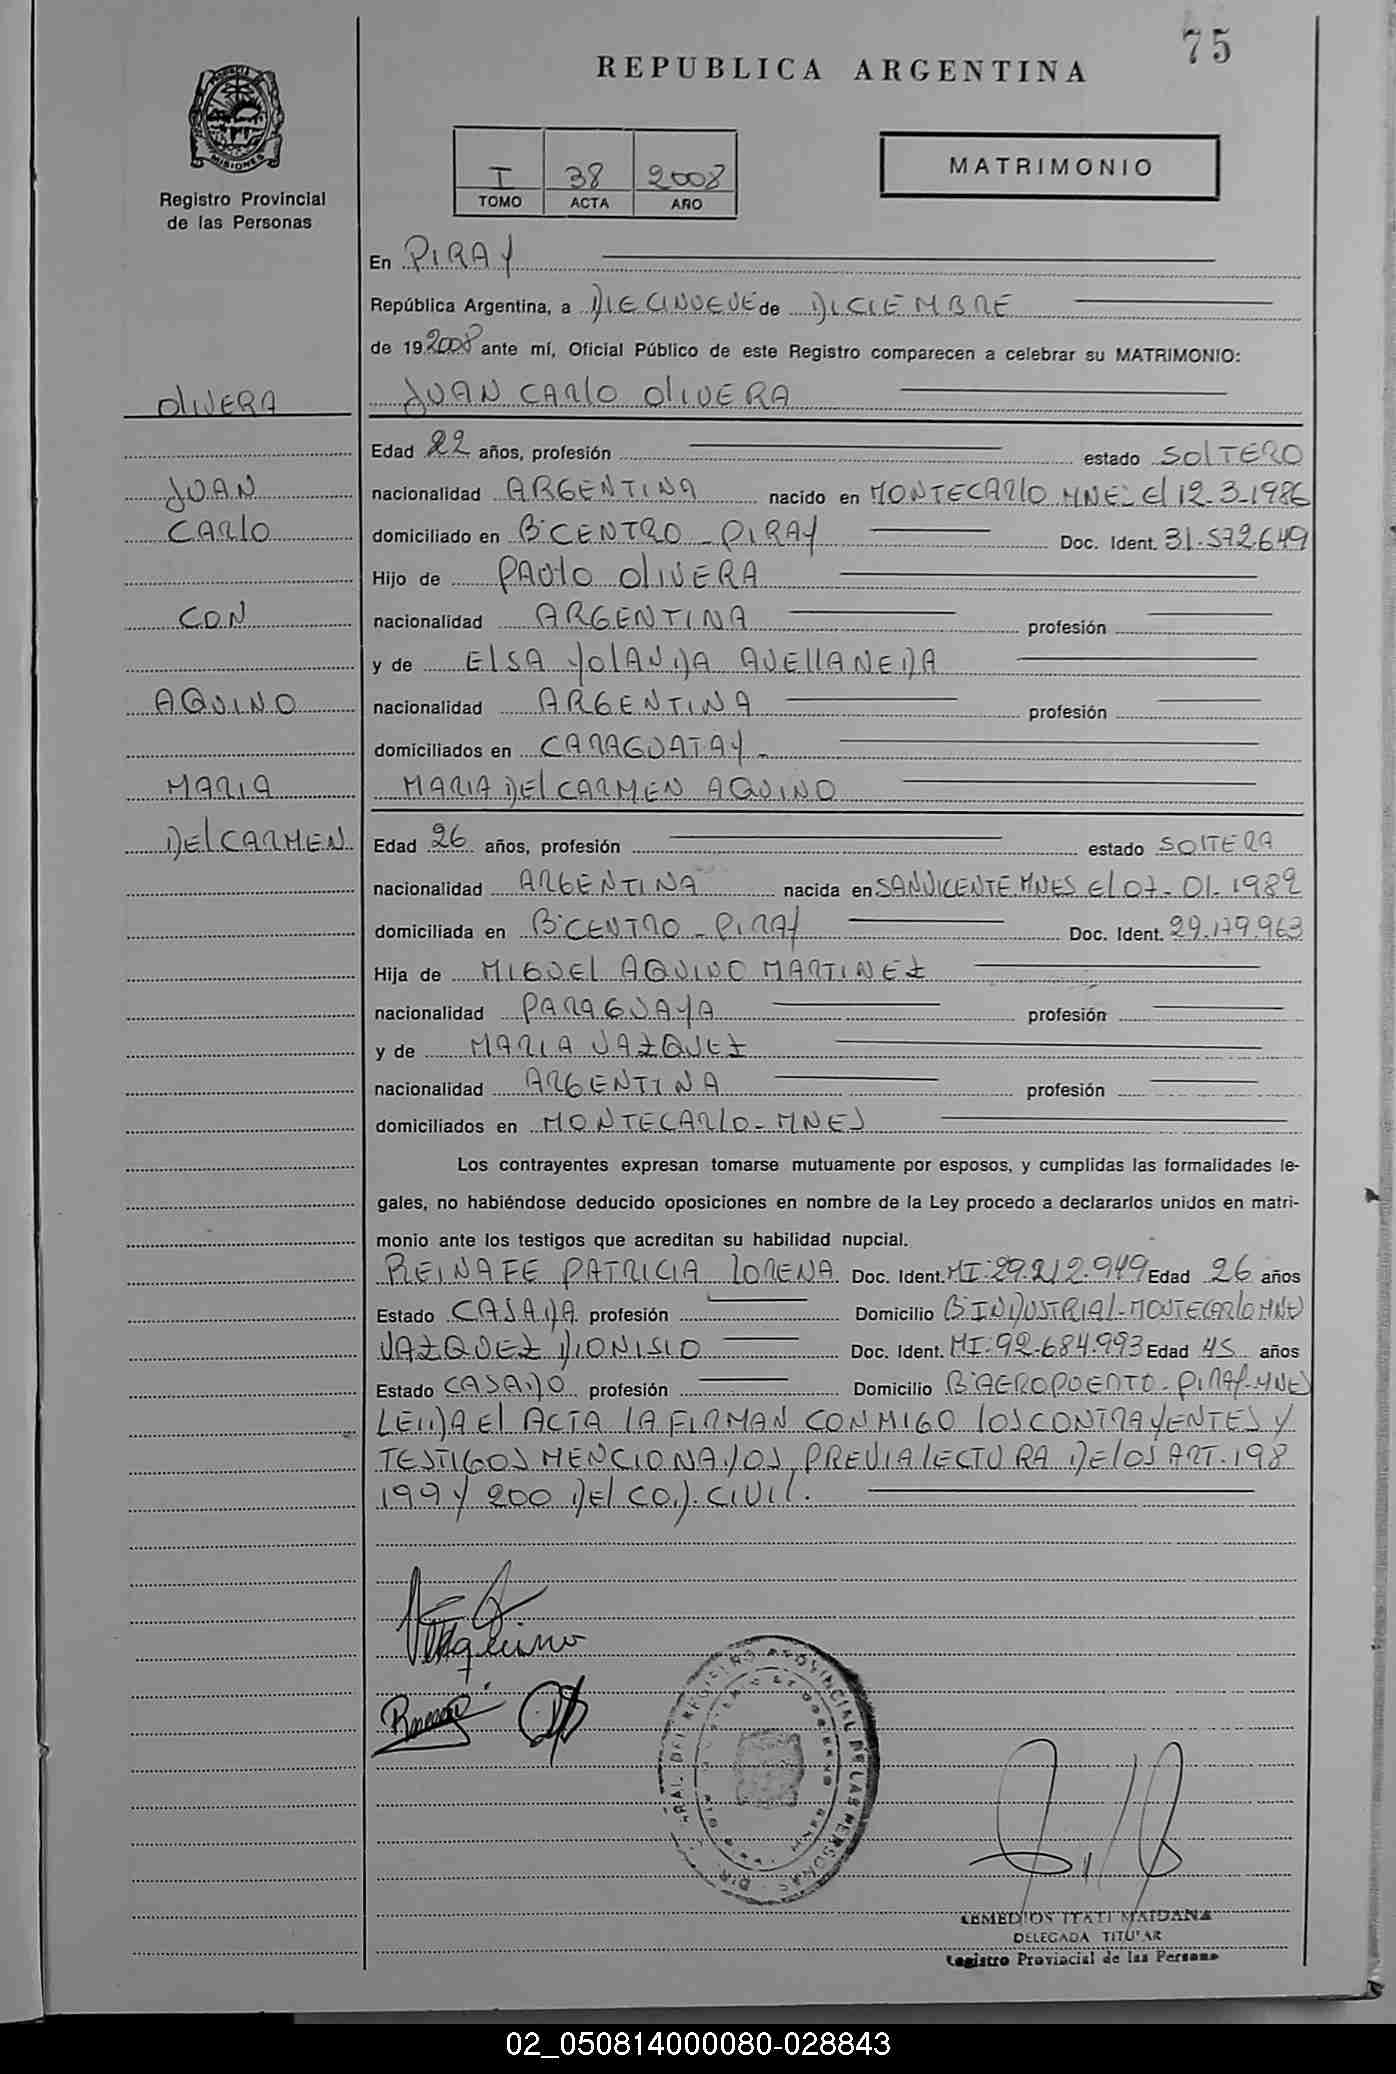 75
REPUBLICA ARGENTINA
PROVINCIA DE MISIONES
Registro Provincial
de las Personas
I 38 2008
TOMO ACTA AÑO
MATRIMONIO
En PIRAY
República Argentina, a DIECINUEVE de DICIEMBRE
de 19 2008 ante mí, Oficial Público de este Registro comparecen a celebrar su MATRIMONIO:
OLIVERA
JUAN CARLO OLIVERA
Edad 22 años, profesión estado SOLTERO
JUAN
nacionalidad ARGENTINA nacido en MONTECARLO MNE. El 12-3-1986
CARLO
domiciliado en B° CENTRO - PIRAY Doc. Ident. 31.572.649
Hijo de PAULO OLIVERA
CON
nacionalidad ARGENTINA profesión
y de ELSA YOLANDA AVELLANEDA
AQUINO
nacionalidad ARGENTINA profesión
domiciliados en CARAGUATAY -
MARIA
MARIA DEL CARMEN AQUINO
DEL CARMEN
Edad 26 años, profesión estado SOLTERA
nacionalidad ARGENTINA nacida en SAN VICENTE MNES El 07-01-1982
domiciliada en B° CENTRO - PIRAY Doc. Ident. 29.179.963
Hija de MIGUEL AQUINO MARTINEZ
nacionalidad PARAGUAYA profesión
y de MARIA VAZQUEZ
nacionalidad ARGENTINA profesión
domiciliados en MONTECARLO - MNES
Los contrayentes expresan tomarse mutuamente por esposos, y cumplidas las formalidades le-
gales, no habiéndose deducido oposiciones en nombre de la Ley procedo a declararlos unidos en matri-
monio ante los testigos que acreditan su habilidad nupcial.
REINAFE PATRICIA LORENA Doc. Ident. MI: 29.212.949 Edad 26 años
Estado CASADA profesión Domicilio B° INDUSTRIAL - MONTECARLO MNES
VAZQUEZ DIONISIO Doc. Ident. MI: 92.684.993 Edad 45 años
Estado CASADO profesión Domicilio B° AEROPUERTO - PIRAY - MNES
LEIDA El ACTA LA FIRMAN CONMIGO LOS CONTRAYENTES Y
TESTIGOS MENCIONADOS, PREVIA LECTURA DE LOS ART. 198
199 Y 200 DEL COD. CIVIL.
Aquino
REGISTRO PROVINCIAL DE LAS PERSONAS
ITATI MAIDANA
DELEGADA TITULAR
Registro Provincial de las Persona
02_050814000080-028843